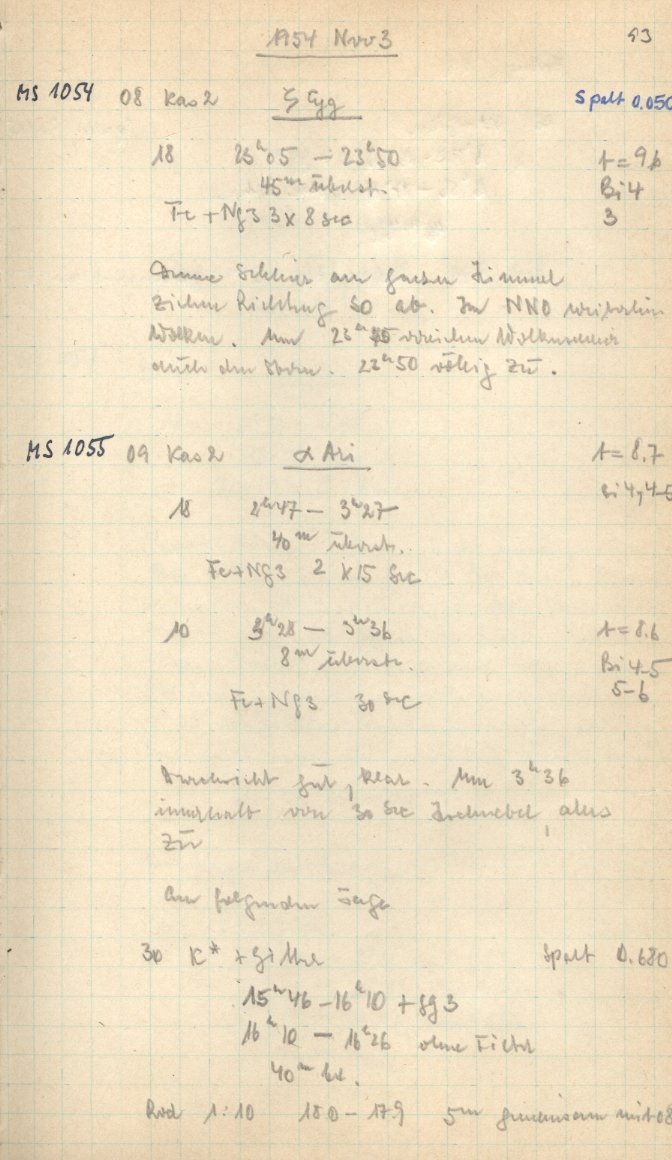 1954 Nov 3 93
MS 1054 08 Kas 2 ζ Cyg Spalt 0.050
18 23ʰ05 – 23ʰ50 t = 9,6
45ᵐ überstr. Bi 4
Fe + Ng3 3 x 8 sec 3
Dünne Schleier am ganzen Himmel
ziehen Richtung SO ab. Im NNO weiterhin
Wolken. Um 23ʰ45 erreichen Wolkenschleier
auch den Stern. 23ʰ50 völlig zu.
MS 1055 09 Kas 2 α Ari t = 8,7
Bi 4, 4-5
18 2ʰ47 – 3ʰ27
40ᵐ überstr.
Fe + Ng3 2 x 15 sec
10 3ʰ28 – 3ʰ36 t = 8.6
8ᵐ überstr. Bi 4-5
Fe + Ng3 30 sec 5-6
Durchsicht gut, klar. Um 3ʰ36
innerhalb von 30 sec Hochnebel, alles
zu
Am folgenden Tage
30 K* + Gitter Spalt 0.680
15ʰ46 – 16ʰ10 + gg 3
16ʰ10 – 16ʰ26 ohne Filter
40ᵐ bel.
Rod 1:10 180 – 179 5ᵐ gemeinsam mit 08